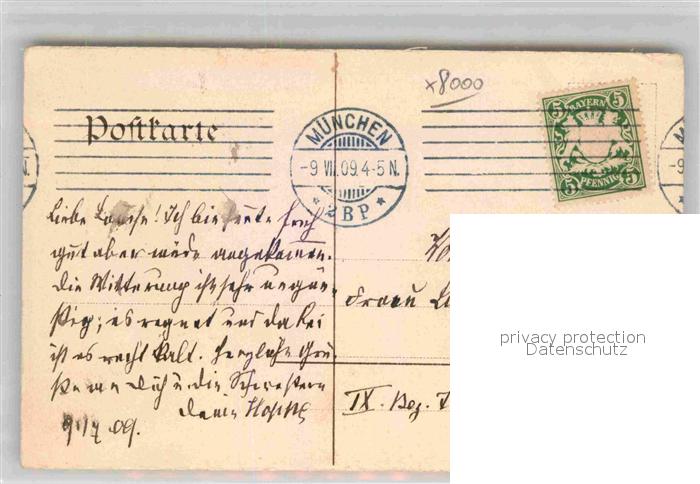 x8000
Postkarte
MÜNCHEN
-9 VII.09.4-5 N.
* 2BP *
BAYERN
5 5
5 PFENNIG 5
Liebe Louise! Ich bin heute früh
gut aber müde angekommen.
Die Witterung ist sehr ungün-
stig; es regnet und dabei
ist es recht kalt. Herzliche Grü-
ße an Dich u. die Schwestern
Dein
9/7 09.
Frau
IX. Bez.
privacy protection
Datenschutz